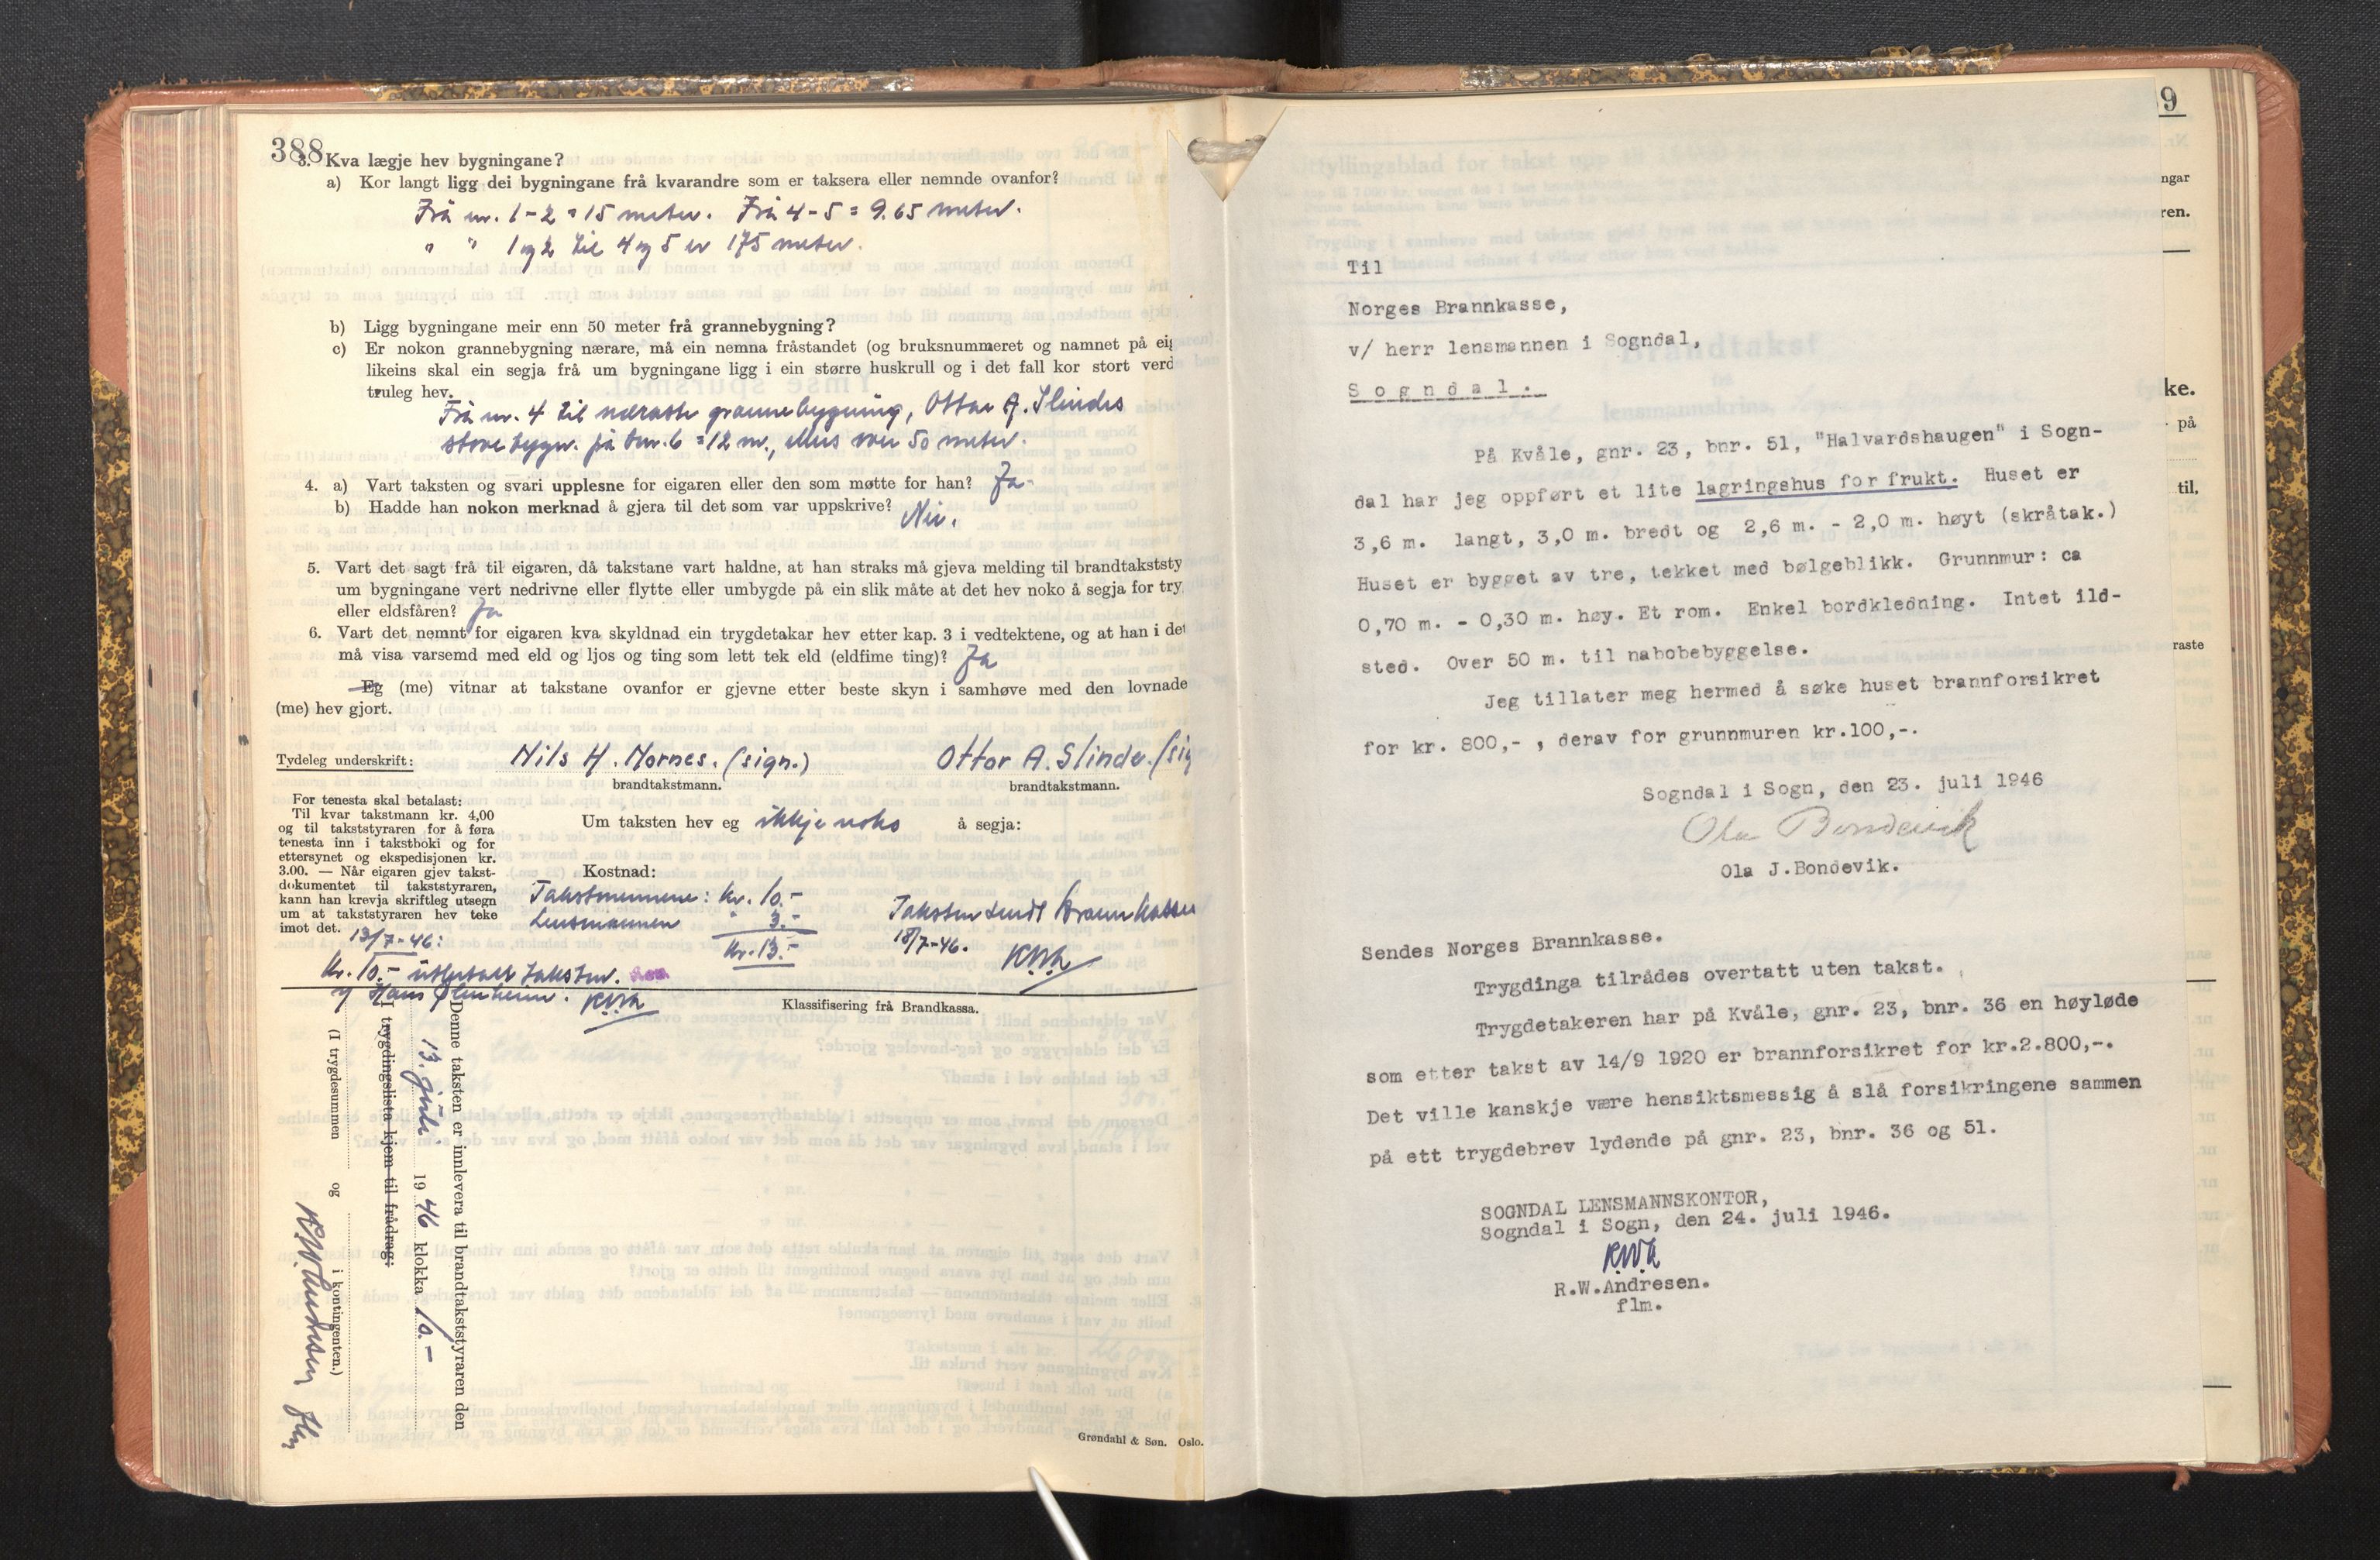 388
3. Kva lægje hev bygningane?
a) Kor langt ligg dei bygningane frå kvarandre som er taksera eller nemnde ovanfor?
Frå nr. 1 - 2 = 15 meter. Frå 4 - 5 = 9.65 meter.
" " 1 og 2 til 4 og 5 er 175 meter.
b) Ligg bygningane meir enn 50 meter frå grannebygning?
c) Er nokon grannebygning nærare, må ein nemna fråstandet (og bruksnummeret og namnet på eig
likeins skal ein segja frå um bygningane ligg i ein større huskrull og i det fall kor stort verd
truleg hev.
Frå nr. 4 til næraste grannebygning, Ottar A. Slindes
stovebygn. på bnr. 6 = 12 m., elles over 50 meter.
4. a) Vart taksten og svari upplesne for eigaren eller den som møtte for han? Ja
b) Hadde han nokon merknad å gjera til det som var uppskrive? Nei.
5. Vart det sagt frå til eigaren, då takstane vart haldne, at han straks må gjeva melding til brandtakststy
um bygningane vert nedrivne eller flytte eller umbygde på ein slik måte at det hev noko å segja for try
eller eldsfåren? Ja
6. Vart det nemnt for eigaren kva skyldnad ein trygdetakar hev etter kap. 3 i vedtektene, og at han i det
må visa varsemd med eld og ljos og ting som lett tek eld (eldfime ting)? Ja
Eg (me) vitnar at takstane ovanfor er gjevne etter beste skyn i samhøve med den lovnade
(me) hev gjort.
Tydeleg underskrift: Nils H. Nornes. (sign.) Ottar A. Slinde. (sig
brandtakstmann. brandtakstmann.
For tenesta skal betalast:
Til kvar takstmann kr. 4,00
og til takststyraren for å føra
tenesta inn i takstboki og for
ettersynet og ekspedisjonen kr.
3.00. — Når eigaren gjev takst-
dokumentet til takststyraren,
kann han krevja skriftleg utsegn
um at takststyraren hev teke
imot det.
Um taksten hev eg ikkje noko å segja:
Kostnad:
Takstmennene: kr. 10.-
Lensmannen " 3.-
Kr. 13.-
Taksten sendt Brannkassen
18/7-46. RWA
13/7-46:
Kr. 10.- utbetalt taksten.
v/ Hans
RWA
Klassifisering frå Brandkassa.
Denne taksten er innlevera til brandtakststyraren den
13. juli 1946 klokka 10.-
I trygdingslista kjem til frådrag:
(I trygdesummen og i kontingenten.)
R.W. Andresen flm
Grøndahl & Søn. Oslo.
9
ngar
ren.
ke.
på
til,
raste
Til
Norges Brannkasse,
v/ herr lensmannen i Sogndal,
Sogndal.
På Kvåle, gnr. 23, bnr. 51, "Halvardshaugen" i Sogn-
dal har jeg oppført et lite lagringshus for frukt. Huset er
3,6 m. langt, 3,0 m. bredt og 2,6 m. - 2,0 m. høyt (skråtak.)
Huset er bygget av tre, tekket med bølgeblikk. Grunnmur: ca
0,70 m. - 0,30 m. høy. Et rom. Enkel bordkledning. Intet ild-
sted. Over 50 m. til nabobebyggelse.
Jeg tillater meg hermed å søke huset brannforsikret
for kr. 800,- , derav for grunnmuren kr.100,-.
Sogndal i Sogn, den 23. juli 1946
Ola Bondevik
Ola J.Bondevik.
Sendes Norges Brannkasse.
Trygdinga tilrådes overtatt uten takst.
Trygdetakeren har på Kvåle, gnr. 23, bnr. 36 en høyløde
som etter takst av 14/9 1920 er brannforsikret for kr.2.800,-.
Det ville kanskje være hensiktsmessig å slå forsikringene sammen
på ett trygdebrev lydende på gnr. 23, bnr. 36 og 51.
SOGNDAL LENSMANNSKONTOR,
Sogndal i Sogn, den 24. juli 1946.
RWA
R.W.Andresen.
flm.